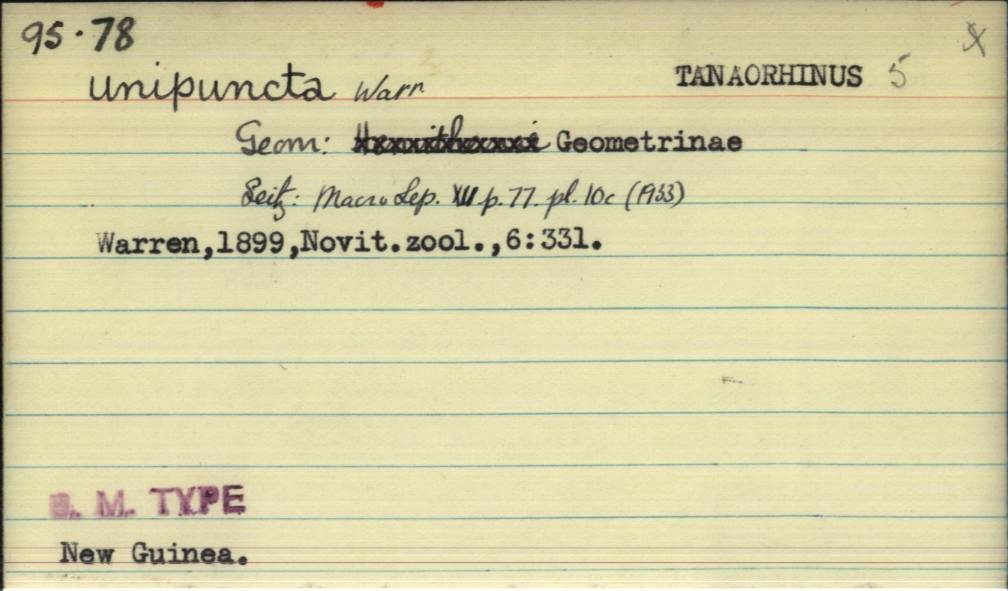 95.78
unipuncta Warr TANAORHINUS 5
Geom: Geometrinae
Seitz: Macro Lep. XII p. 77. pl. 10c (1933)
Warren,1899,Novit.zool.,6:331.
B. M. TYPE
New Guinea.